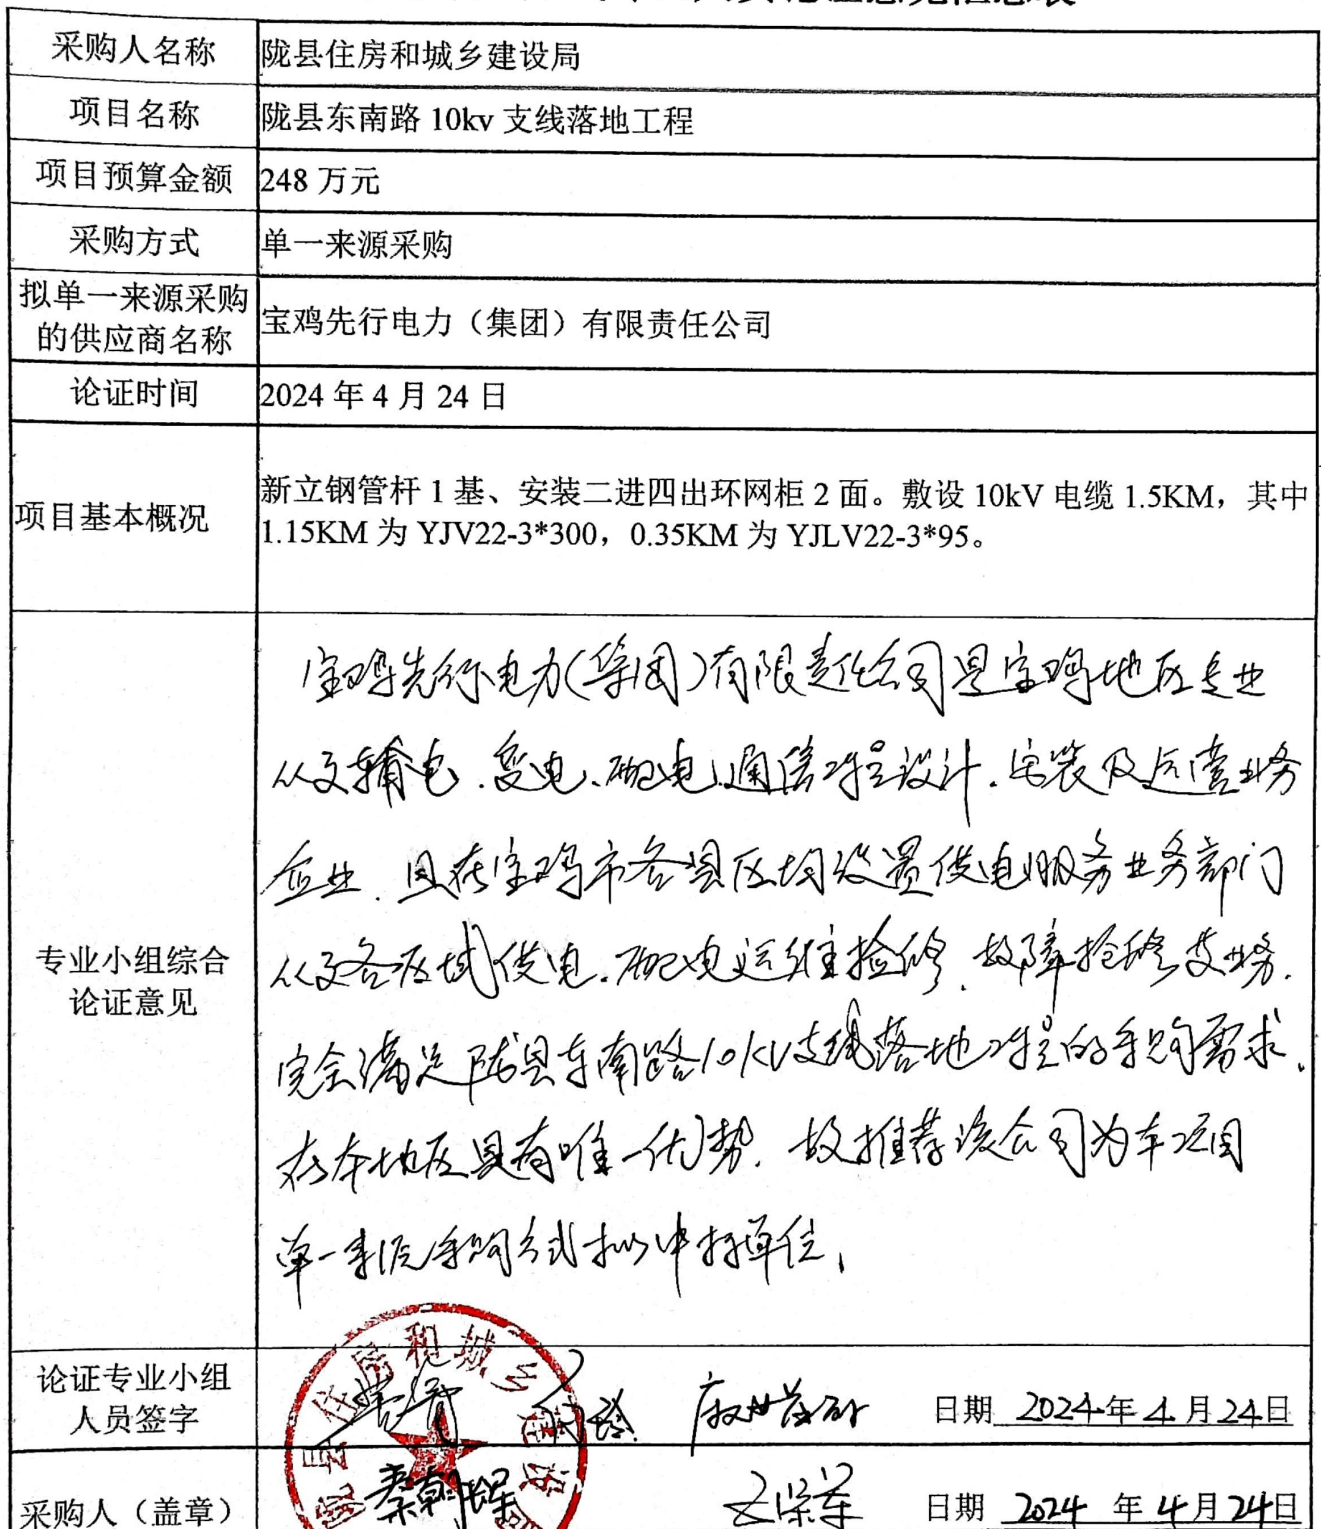 采购人名称 陇县住房和城乡建设局
项目名称 陇县东南路 10kv 支线落地工程
项目预算金额 248 万元
采购方式 单一来源采购
拟单一来源采购
的供应商名称 宝鸡先行电力（集团）有限责任公司
论证时间 2024 年 4 月 24 日
项目基本概况
新立钢管杆 1 基、安装二进四出环网柜 2 面。敷设 10kV 电缆 1.5KM，其中
1.15KM 为 YJV22-3*300，0.35KM 为 YJLV22-3*95。
专业小组综合
论证意见
宝鸡先行电力(集团)有限责任公司是宝鸡地区专业
从事输电、变电、配电、通信工程设计、安装及运营业务
企业，且在宝鸡市各县区均设置供电服务业务部门
从事各区域供电、配电运维检修、故障抢修类业务，
完全满足陇县东南路10kV支线落地工程的采购需求，
在本地区具有唯一优势，故推荐该公司为本项目
单一来源采购方式拟中标单位。
论证专业小组
人员签字
日期 2024年 4 月 24日
采购人（盖章）
秦朝辉
日期 2024 年 4 月 24日
陇县住房和城乡建设局